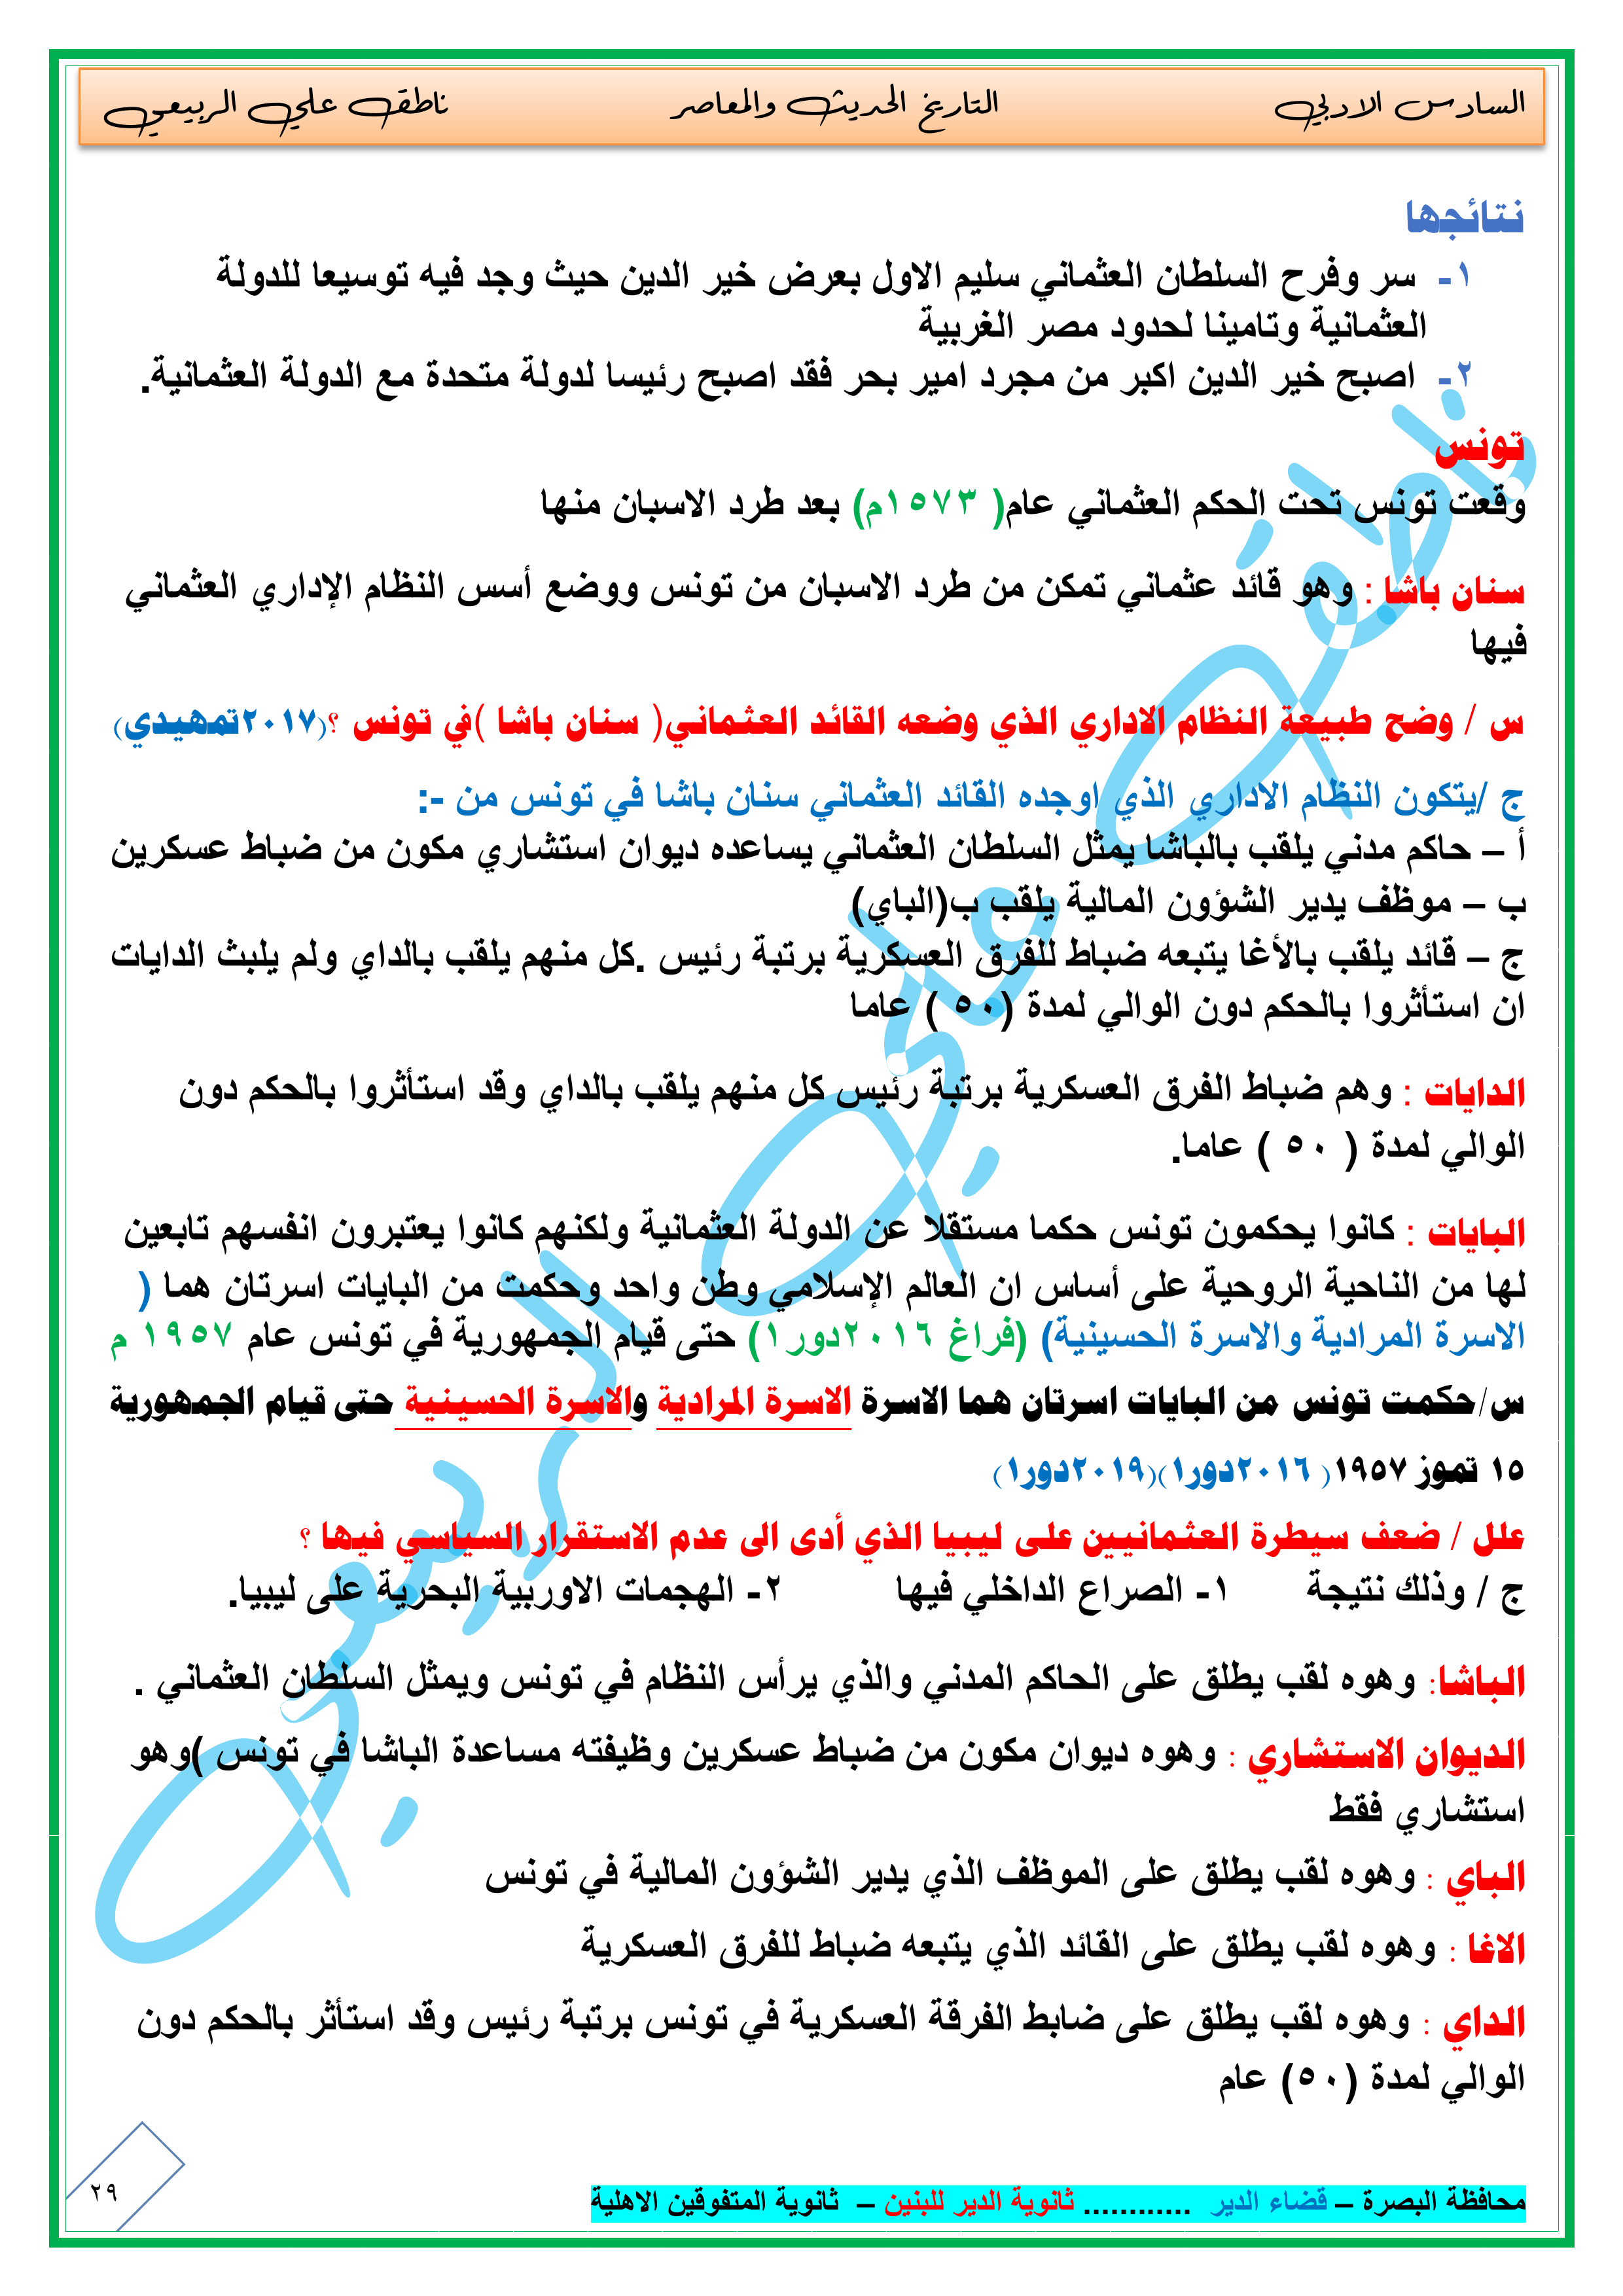 السادس الادبي التاريخ الحديث والمعاصر ناطق علي الربيعي
نتائجها
١- سر وفرح السلطان العثماني سليم الاول بعرض خير الدين حيث وجد فيه توسيعا للدولة
العثمانية وتامينا لحدود مصر الغربية
٢- اصبح خير الدين اكبر من مجرد امير بحر فقد اصبح رئيسا لدولة متحدة مع الدولة العثمانية.
تونس
وقعت تونس تحت الحكم العثماني عام( ١٥٧٣م) بعد طرد الاسبان منها
سنان باشا : وهو قائد عثماني تمكن من طرد الاسبان من تونس ووضع أسس النظام الإداري العثماني
فيها
س / وضح طبيعة النظام الاداري الذي وضعه القائد العثماني( سنان باشا )في تونس ؟(٢٠١٧تمهيدي)
ج /يتكون النظام الاداري الذي اوجده القائد العثماني سنان باشا في تونس من -:
أ – حاكم مدني يلقب بالباشا يمثل السلطان العثماني يساعده ديوان استشاري مكون من ضباط عسكرين
ب – موظف يدير الشؤون المالية يلقب ب(الباي)
ج – قائد يلقب بالأغا يتبعه ضباط للفرق العسكرية برتبة رئيس .كل منهم يلقب بالداي ولم يلبث الدايات
ان استأثروا بالحكم دون الوالي لمدة (٥٠ ) عاما
الدايات : وهم ضباط الفرق العسكرية برتبة رئيس كل منهم يلقب بالداي وقد استأثروا بالحكم دون
الوالي لمدة ( ٥٠ ) عاما.
البايات : كانوا يحكمون تونس حكما مستقلا عن الدولة العثمانية ولكنهم كانوا يعتبرون انفسهم تابعين
لها من الناحية الروحية على أساس ان العالم الإسلامي وطن واحد وحكمت من البايات اسرتان هما (
الاسرة المرادية والاسرة الحسينية) (فراغ ٢٠١٦دور١) حتى قيام الجمهورية في تونس عام ١٩٥٧ م
س/حكمت تونس من البايات اسرتان هما الاسرة الاسرة المرادية والاسرة الحسينية حتى قيام الجمهورية
١٥ تموز ١٩٥٧( ٢٠١٦دور١)(٢٠١٩دور١)
علل / ضعف سيطرة العثمانيين على ليبيا الذي أدى الى عدم الاستقرار السياسي فيها ؟
ج / وذلك نتيجة ١- الصراع الداخلي فيها ٢- الهجمات الاوربية البحرية على ليبيا.
الباشا: وهوه لقب يطلق على الحاكم المدني والذي يرأس النظام في تونس ويمثل السلطان العثماني .
الديوان الاستشاري : وهوه ديوان مكون من ضباط عسكرين وظيفته مساعدة الباشا في تونس )وهو
استشاري فقط
الباي : وهوه لقب يطلق على الموظف الذي يدير الشؤون المالية في تونس
الاغا : وهوه لقب يطلق على القائد الذي يتبعه ضباط للفرق العسكرية
الداي : وهوه لقب يطلق على ضابط الفرقة العسكرية في تونس برتبة رئيس وقد استأثر بالحكم دون
الوالي لمدة (٥٠) عام
٢٩
محافظة البصرة – قضاء الدير ............ ثانوية الدير للبنين – ثانوية المتفوقين الاهلية
ناطق علي الربيعي